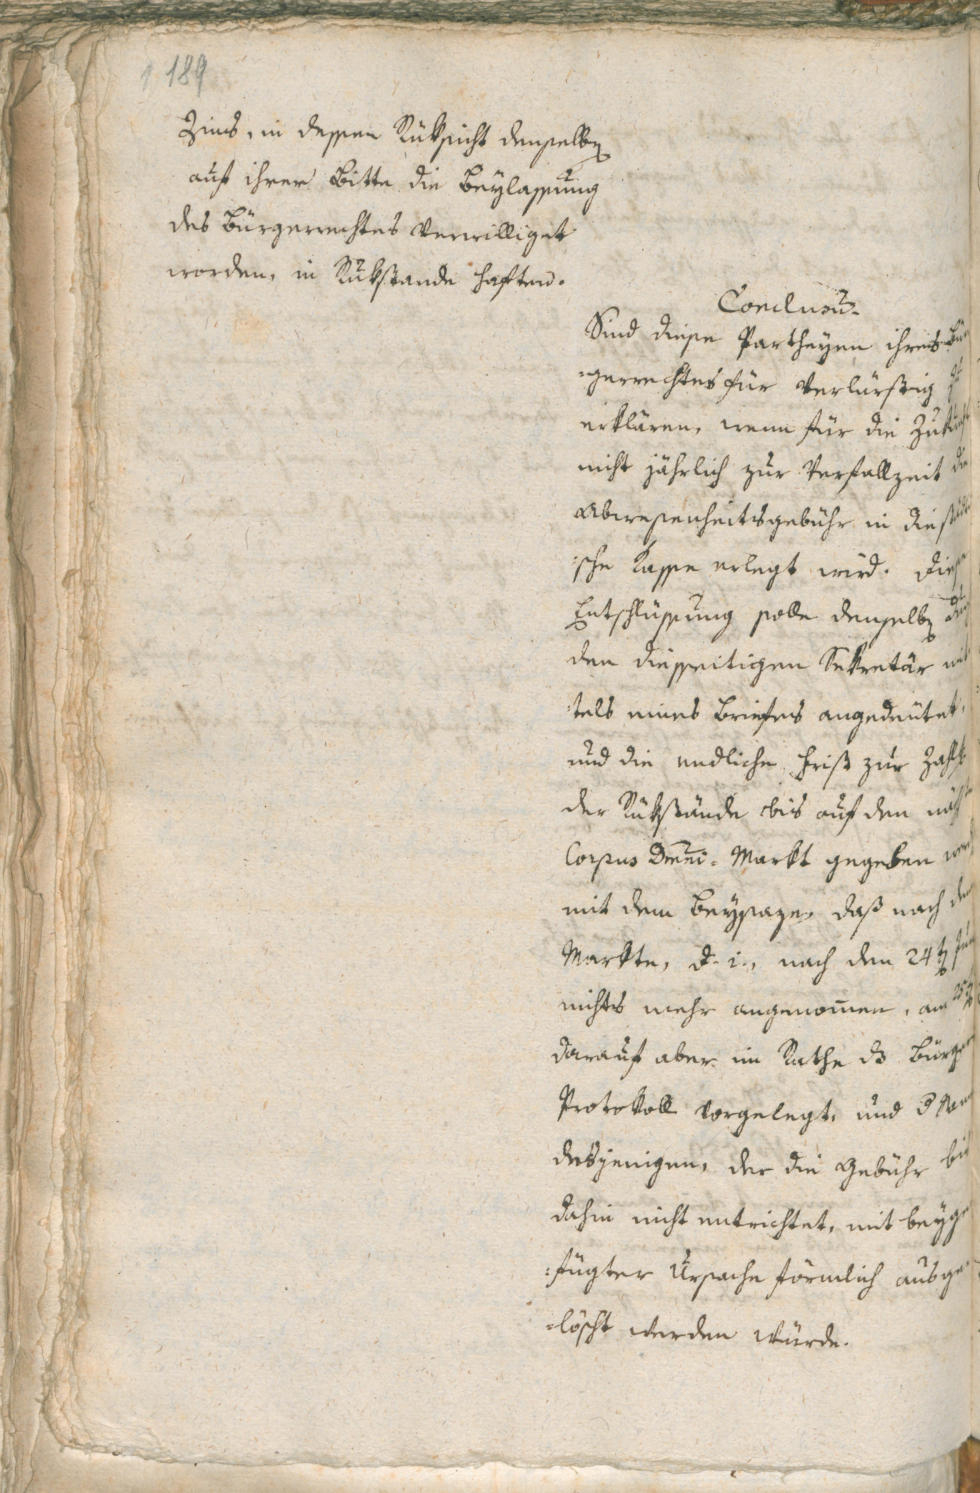 189
Zins, in dessen Rüksicht denselben
auf ihrer Bitte die Beylassung
des Bürgerrechtes verwilliget
worden, in Rükstande haften.
Conclusum
Sind diese Partheyen ihres Bür
-gerrechtes für verlürstig zu
erklären, wenn für die Zukunft
nicht jährlich zur Verfallzeit die
Abwesenheitsgebühr in die städt
:sche Kasse erlegt wird. Diese
Entschlüssung solle denselben durch
den diesseitigen Sekretär mit
:tels eines Briefes angedeutet,
und die endliche Frist zur Zahlg
der Rükstände bis auf den nächsten
Corpus Domini-Markt gegeben werden
mit dem Beysaze, daß nach dem
Markte, d. i., nach dem 24ten Juny
nichts mehr angenommen, am
darauf aber im Rathe das Bürger
Protokoll vorgelegt, und
desjenigen, der die Gebühr bis
dahin nicht entrichtet, mit beyge
:fügter Ursache förmlich ausge
=löscht werden würde.